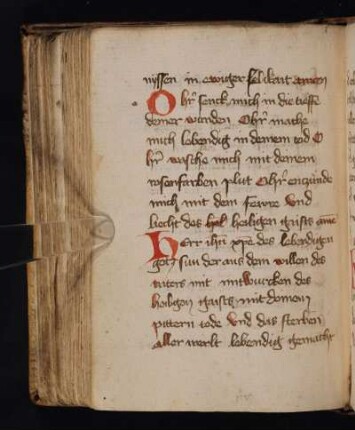 nyssen in ewiger selikait amen
O hr̄ senck mich in die tieffe
deiner wunden O hr̄ mache
mich lebendig in deinem tod O
hr̄ wasche mich mit deinem
rosenfarben plut O hr̄ enzünde
mich mit dem fewre vnd
liecht des heiligen gaists amē
Herr ihū xp̄e des lebendigen
gotz sun der aus dem willen des
vaters mit mitwurcken des
heiligen gaists mit deinem
pittern tode vnd das sterben
aller werlt lebendig gemacht